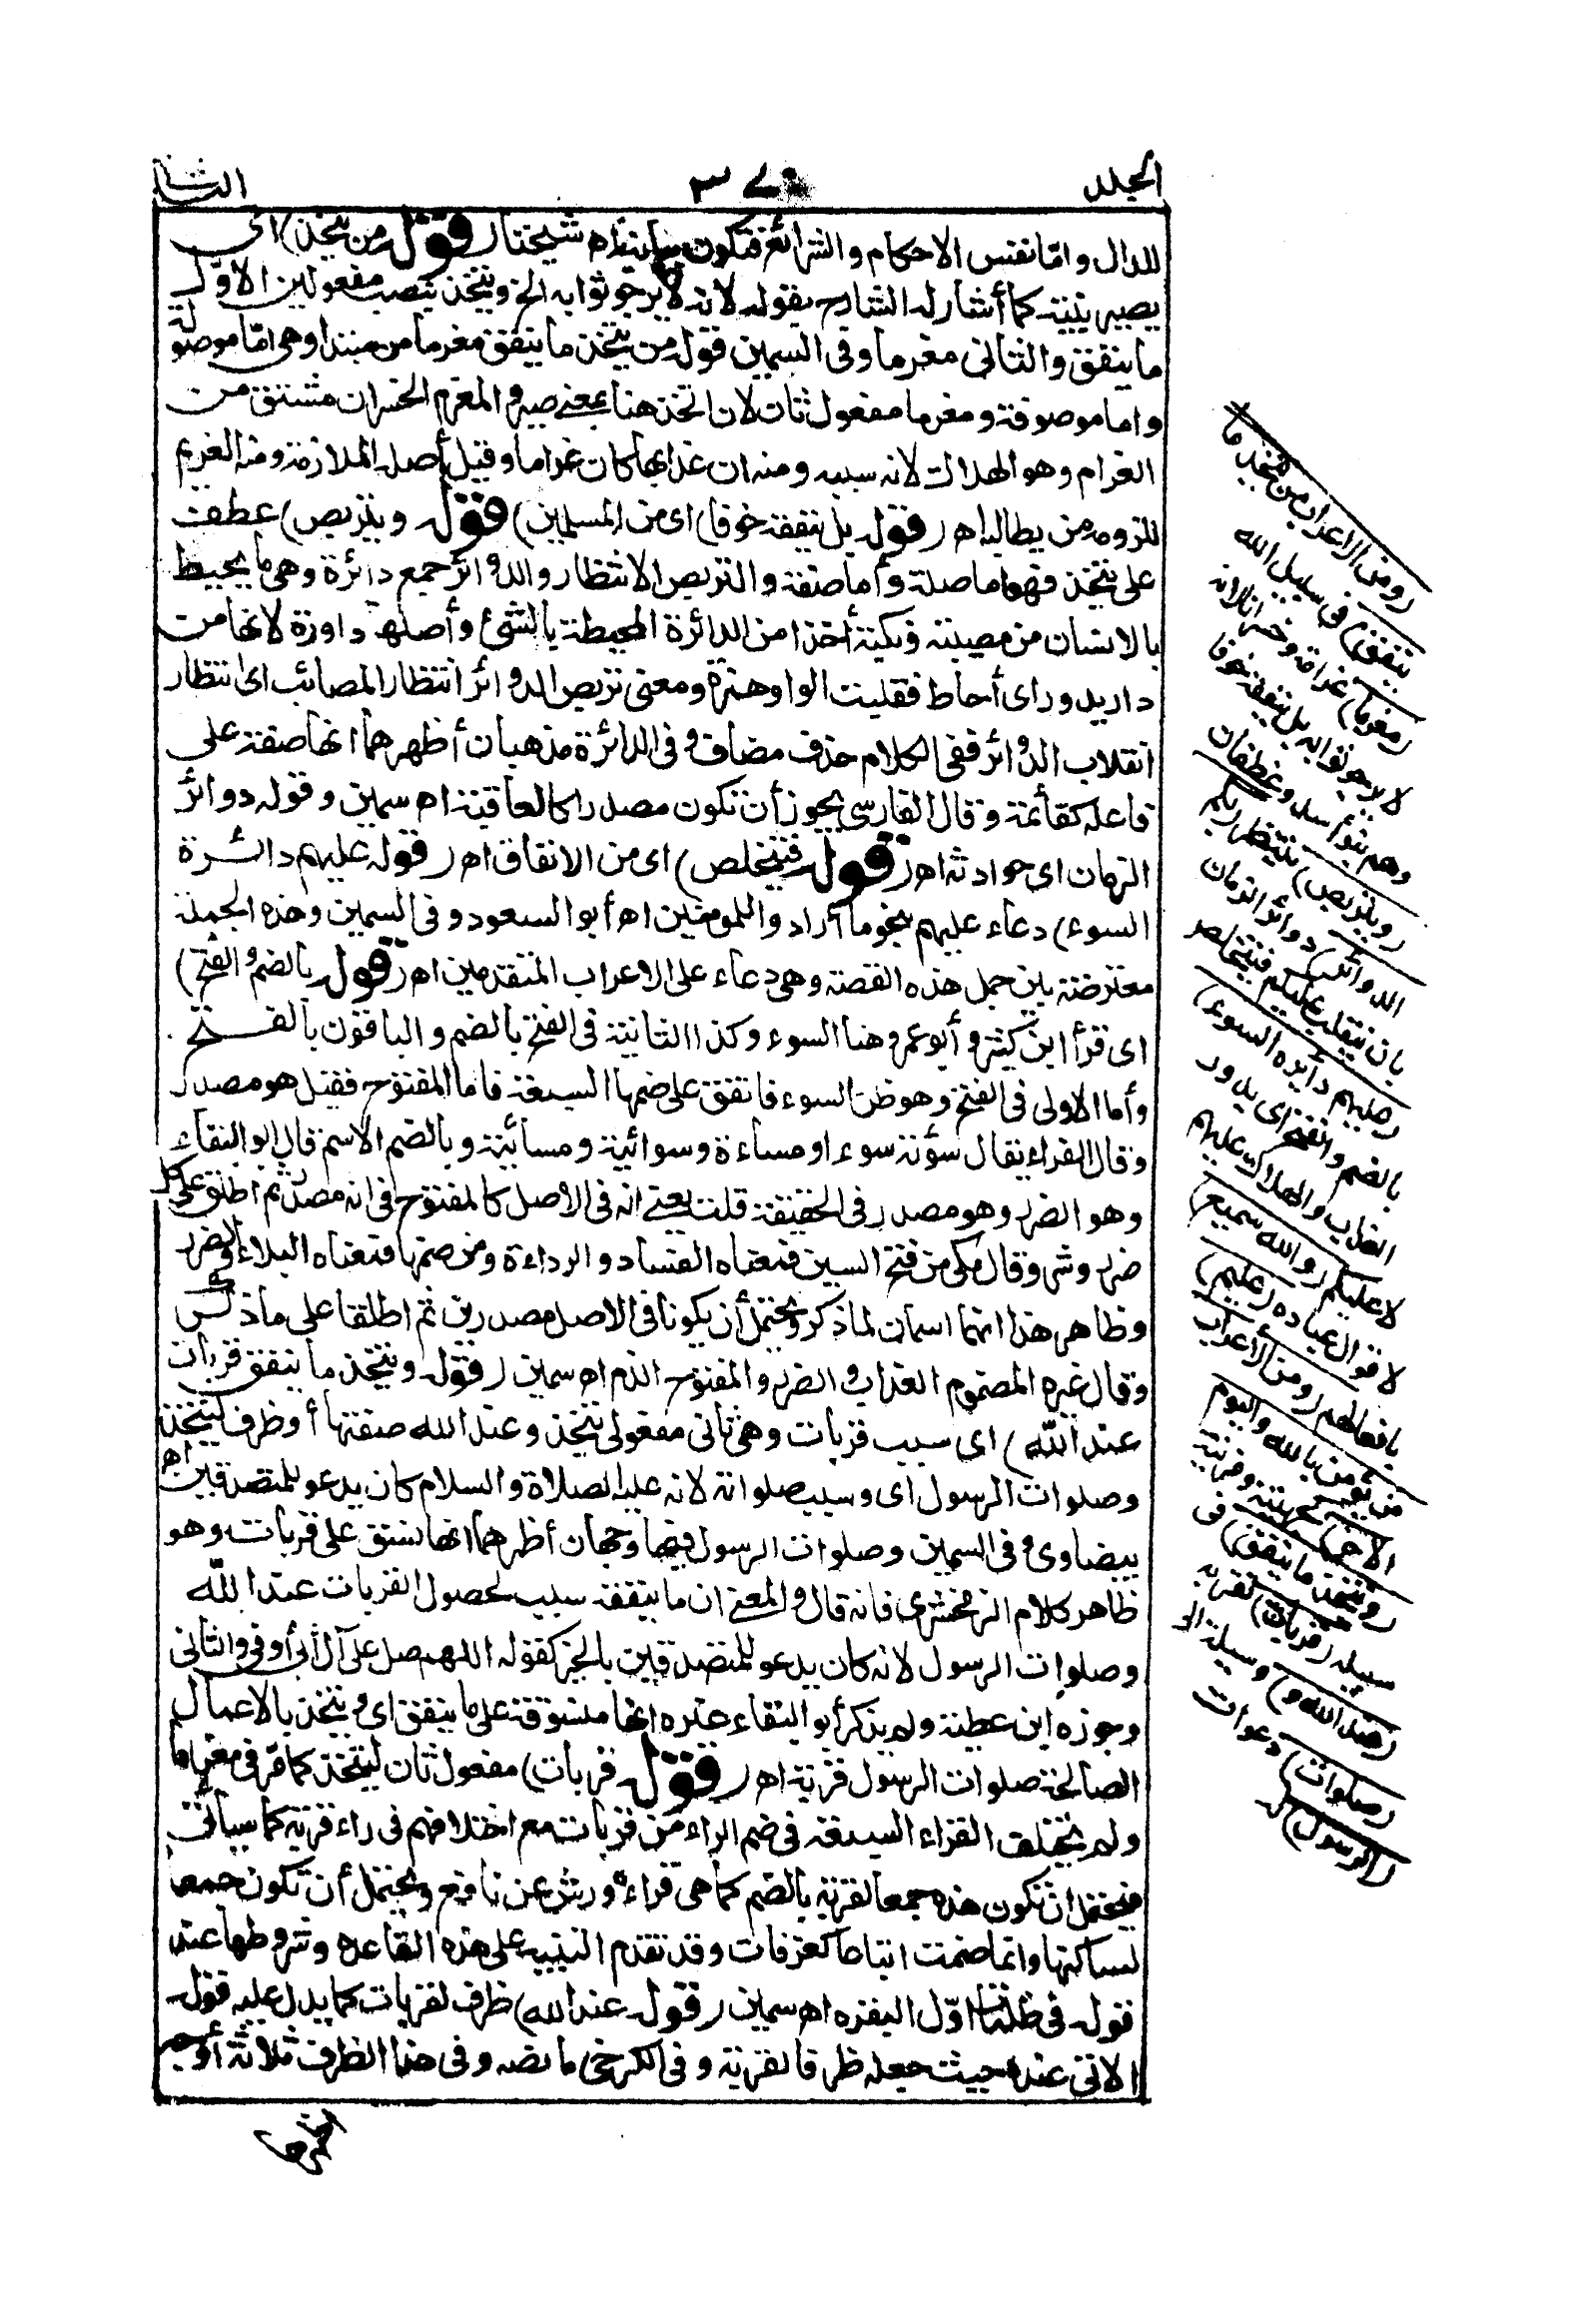 الجلد
٣٧٠
الثاني
للدال واما نفس الاحكام والشرائع فتكون بيانية اه شيخنا (قوله من يتخذ) اى
يصير بنيته كما أشار له الشارح بقوله لانه لا يرجو ثوابه الخ ويتخذ ينصب مفعولين الاوّل
ما ينفق والثانى مغرما وفى السمين قوله من يتخذ ما ينفق مغرما من مبتدا وهى امّا موصولة
واما موصوفة ومغرما مفعول ثان لان اتخذ هنا بمعنى صير والمغرم الخسران مشتق من
الغرام وهو الهلاك لانه سببه ومنه ان عذابها كان غراما وقيل أصله الملازمة ومنه الغريم
للزومه من يطالبه اه (قوله بل ينفقه خوفا) اى من المسلمين (قوله ويتربص) عطف
على يتخذ فهو اما صلة وأما صفة والتربص الانتظار والدوائر جمع دائرة وهى ما يحيط
بالانسان من مصيبة ونكبة أخذا من الدائرة المحيطة بالشئ وأصلها داورة لانها من
دار يدور اى أحاط فقلبت الواو همزة ومعنى تربص الدوائر انتظار المصائب اى انتظار
انقلاب الدوائر ففى الكلام حذف مضاف وفى الدائرة مذهبان أظهرهما انها صفة على
فاعلة كقائمة وقال الفارسى يجوز أن تكون مصدرا كالعاقبة اه سمين وقوله دوائر
الزمان اى حوادثه اه (قوله فيتخلص) اى من الانفاق اه (قوله عليهم دائرة
السوء) دعاء عليهم بنحو ما أراد واللمؤمنين اه أبو السعود وفى السمين وهذه الجملة
معترضة بين جمل هذه القصة وهى دعاء على الاعراب المتقدمين اه (قوله بالضم والفتح)
اى قرأ ابن كثير وأبو عمرو هنا السوء وكذا الثانية فى الفتح بالضم والباقون بالفتح
وأما الاولى فى الفتح وهو ظن السوء فاتفق على ضمها السبعة فاما المفتوح فقيل هو مصدر
وقال الفراء يقال سؤته سوء او مساءة وسوائية ومسائية وبالضم الاسم قال ابو البقاء
وهو الضر وهو مصدر فى الحقيقة قلت يعنى انه فى الاصل كالمفتوح فى انه مصدر ثم اطلق على كل
ضر وشر وقال مكى من فتح السين فمعناه الفساد والرداءة ومن ضمها فمعناه البلاء والضرر
وظاهر هذا انهما اسمان لما ذكر ويحتمل أن يكونا فى الاصل مصدرين ثم اطلقا على ما ذكر
وقال غيره المضموم العذاب والضر والمفتوح الذم اه سمين (قوله ويتخذ ما ينفق قربات
عند الله) اى سبب قربات وهى ثانى مفعولى يتخذ وعند الله صفتها أو ظرف ليتخذ
وصلوات الرسول اى وسبب صلواته لانه عليه الصلاة والسلام كان يدعو للمتصدقين اه
بيضاوى وفى السمين وصلوات الرسول فيها وجهان أظهرهما انها نسق على قربات وهو
ظاهر كلام الزمخشرى فانه قال والمعنى ان ما ينفقه سبب لحصول القربات عند الله
وصلوات الرسول لانه كان يدعو للمتصدقين بالخير كقوله اللهم صل على آل أبى أوفى والثانى
وجوزه ابن عطية ولم يذكر أبو البقاء غيره انها منسوقة على ما ينفق اى ويتخذ بالاعمال
الصالحة صلوات الرسول قربة اه (قوله قربات) مفعول ثان ليتخذ كما مرّ فى مغرما
ولم يختلف القراء السبعة فى ضم الراء من قربات مع اختلافهم فى راء قربة كما سيأتى
فيحتمل ان تكون هذه جمعا لقربة بالضم كما هى قراءة ورش عن نافع ويحتمل أن تكون جمعا
لساكنها وانما ضمت اتباعا كغرفات وقد تقدم التنبيه على هذه القاعدة وشروطها عند
قوله فى ظلمات اوّل البقرة اه سمين (قوله عند الله) ظرف لقربات كما يدل عليه قوله
الآتى عنده حيث جعله ظرفا لقربة وفى الكرخى ما نصه وفى هذا الظرف ثلاثة أوجه
(ومن الاعراب من يتخذ ما
ينفق) فى سبيل الله
(مغرما) غرامة وخسرانا لانه
لا يرجو ثوابه بل ينفقه خوفا
وهم بنو أسد وغطفان
(ويتربص) ينتظر (بكم
الدوائر) دوائر الزمان
بان تنقلب عليكم فيتخلص
(عليهم دائرة السوء)
بالضم والفتح اى يدور
العذاب والهلاك عليهم
لا عليكم (والله سميع)
لاقوال عباده (عليم)
بافعالهم (ومن الاعراب
من يؤمن بالله واليوم
الآخر) كجهينة ومزينة
(ويتخذ ما ينفق) فى
سبيله (قربات) تقربه
(عند الله و) وسيلة الى
(صلوات) دعوات
(الرسول) له